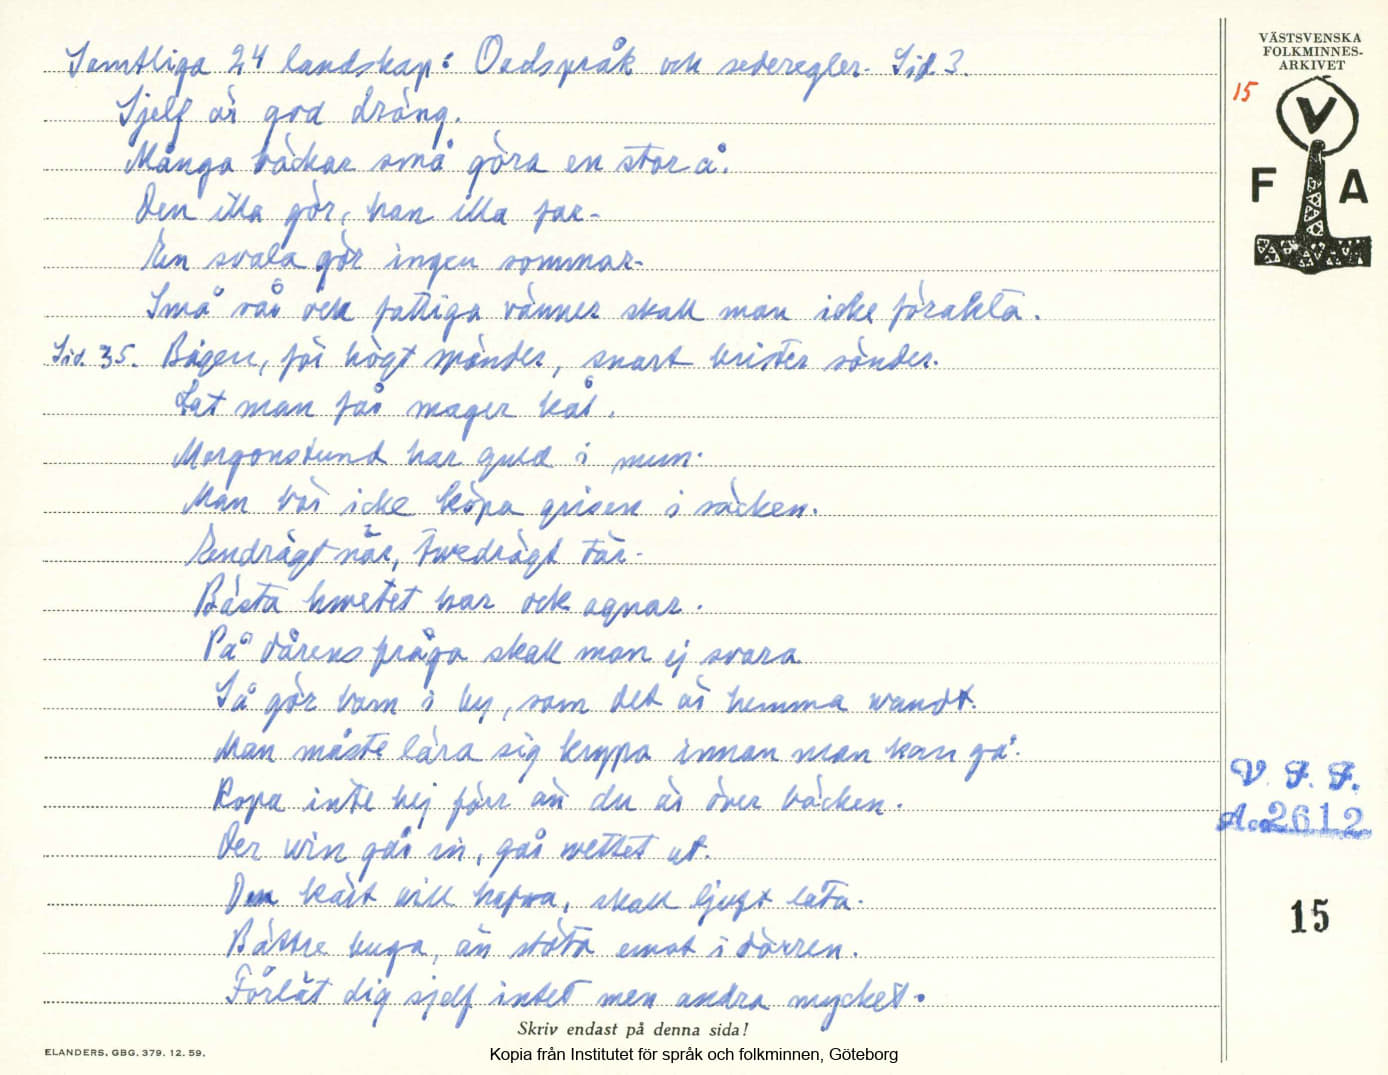 VÄSTSVENSKA
FOLKMINNES-
ARKIVET
15
V
F A
Samtliga 24 landskap: Ordspråk och sederegler. Sid 3.
Sjelf är god dräng.
Många bäckar små göra en stor å.
Den illa gör, han illa far.
En svala gör ingen sommar.
Små sår och fattiga vänner skall man icke förakta.
Sid. 35. Bågen, för högt spändes, snart brister sönder.
Lat man får mager kål.
Morgonstund har guld i mun.
Man bör icke köpa grisen i säcken.
Endrägt när, twedrägt tär.
Bästa hwetet har ock agnar.
På dårens fråga skall man ej svara
Så gör barn i by, som det är hemma wandt.
Man måste lära sig krypa innan man kan gå.
Ropa inte hej förr än du är över bäcken.
Der win går in, går wettet ut.
Den kärt will hafwa, skall ljuft låta.
Bättre buga, än stöta emot i dörren.
Förlåt dig sjelf intet men andra mycket.
V. F. F.
Acc 2612
15
Skriv endast på denna sida!
ELANDERS. GBG. 379. 12. 59.
Kopia från Institutet för språk och folkminnen, Göteborg